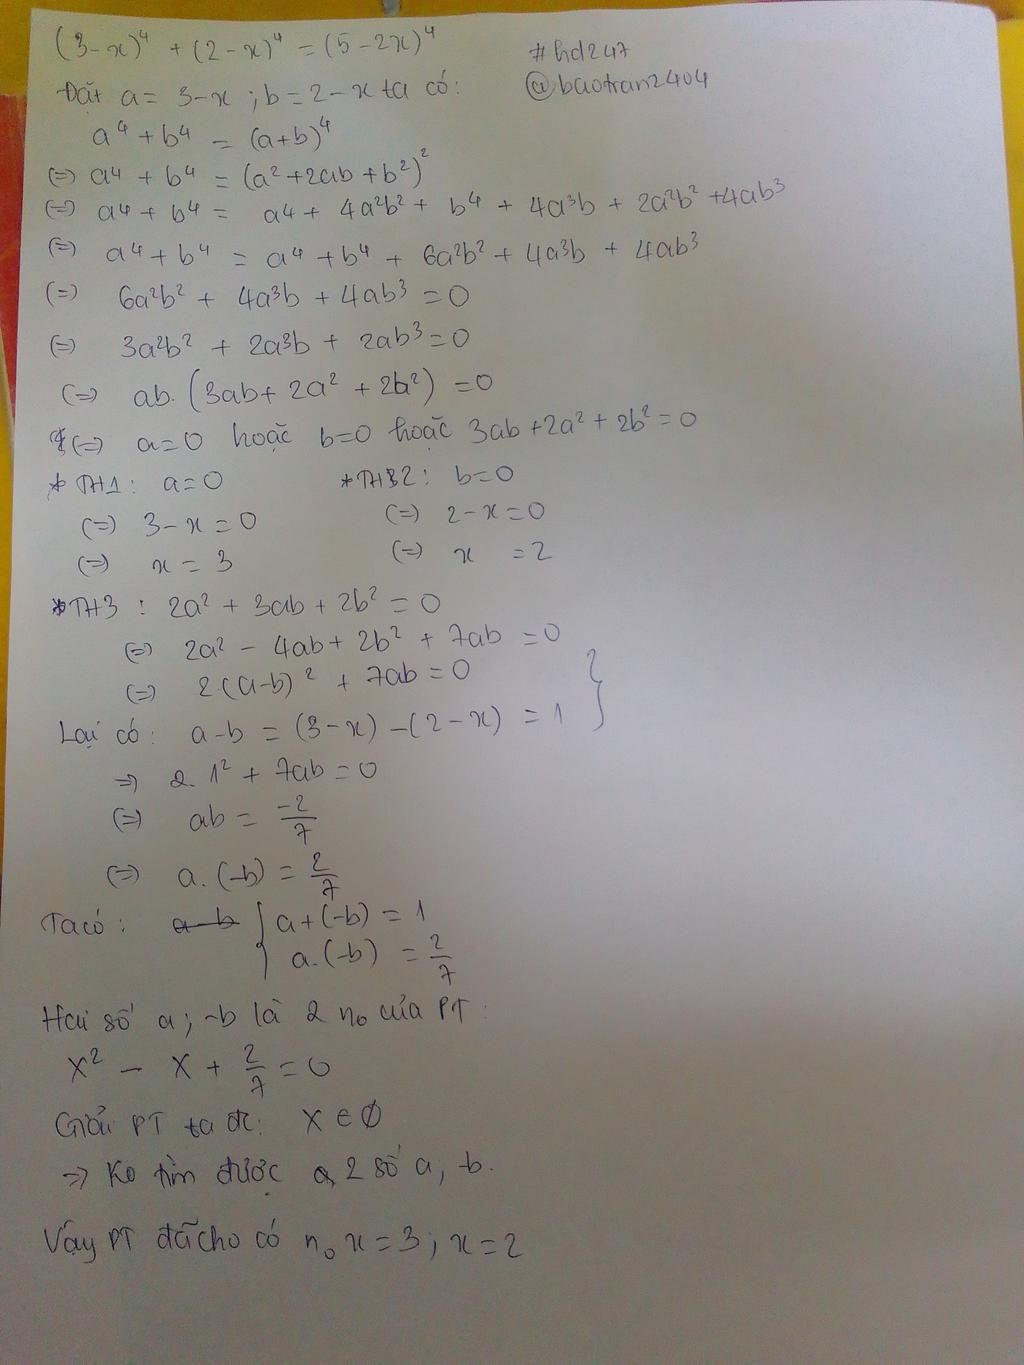 (3-x)⁴ + (2-x)⁴ = (5-2x)⁴
#hd247
@baotran2404
Đặt a = 3-x ; b = 2-x ta có:
a⁴ + b⁴ = (a+b)⁴
(=) a⁴ + b⁴ = (a² + 2ab + b²)²
(=) a⁴ + b⁴ = a⁴ + 4a²b² + b⁴ + 4a³b + 2a²b² + 4ab³
(=) a⁴ + b⁴ = a⁴ + b⁴ + 6a²b² + 4a³b + 4ab³
(=) 6a²b² + 4a³b + 4ab³ = 0
(=) 3a²b² + 2a³b + 2ab³ = 0
(=) ab. (3ab + 2a² + 2b²) = 0
(=) a=0 hoặc b=0 hoặc 3ab + 2a² + 2b² = 0
* TH1: a=0
(=) 3-x = 0
(=) x = 3
* TH2: b=0
(=) 2-x = 0
(=) x = 2
* TH3 : 2a² + 3ab + 2b² = 0
(=) 2a² - 4ab + 2b² + 7ab = 0
(=) 2.(a-b)² + 7ab = 0
Lại có: a-b = (3-x) - (2-x) = 1 }
=) 2. 1² + 7ab = 0
(=) ab = -2/7
(=) a. (-b) = 2/7
Ta có: a-b { a + (-b) = 1
a. (-b) = 2/7
Hai số a; -b là 2 no của PT:
X² - X + 2/7 = 0
Giải PT ta đc: X ∈ ∅
=) Ko tìm được 2 số a; -b.
Vậy PT đã cho có no x = 3; x = 2